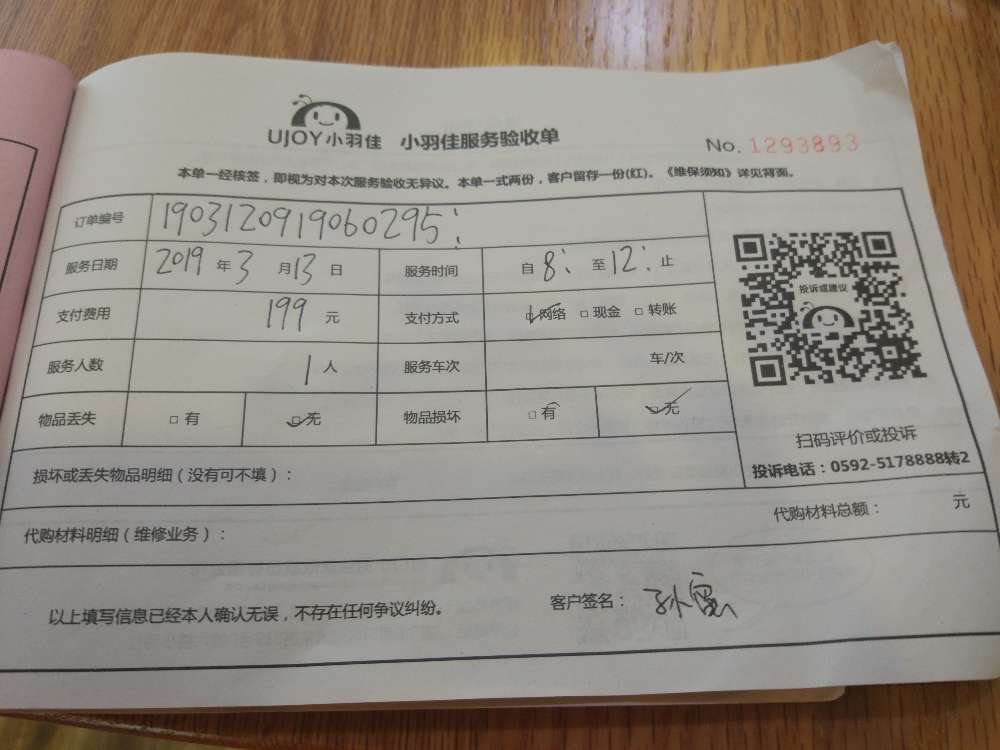 UJOY小羽佳 小羽佳服务验收单 No. 1293893
本单一经核签，即视为对本次服务验收无异议。本单一式两份，客户留存一份(红)。《维保须知》详见背面。
订单编号 1903120919060295
服务日期 2019 年 3 月 13 日 服务时间 自 8: 至 12: 止
支付费用 199 元 支付方式 网络 现金 转账
服务人数 1 人 服务车次 车/次
物品丢失 有 无 物品损坏 有 无
投诉或建议
扫码评价或投诉
投诉电话：0592-5178888转2
损坏或丢失物品明细（没有可不填）：
代购材料明细（维修业务）： 代购材料总额： 元
以上填写信息已经本人确认无误，不存在任何争议纠纷。 客户签名： 孙